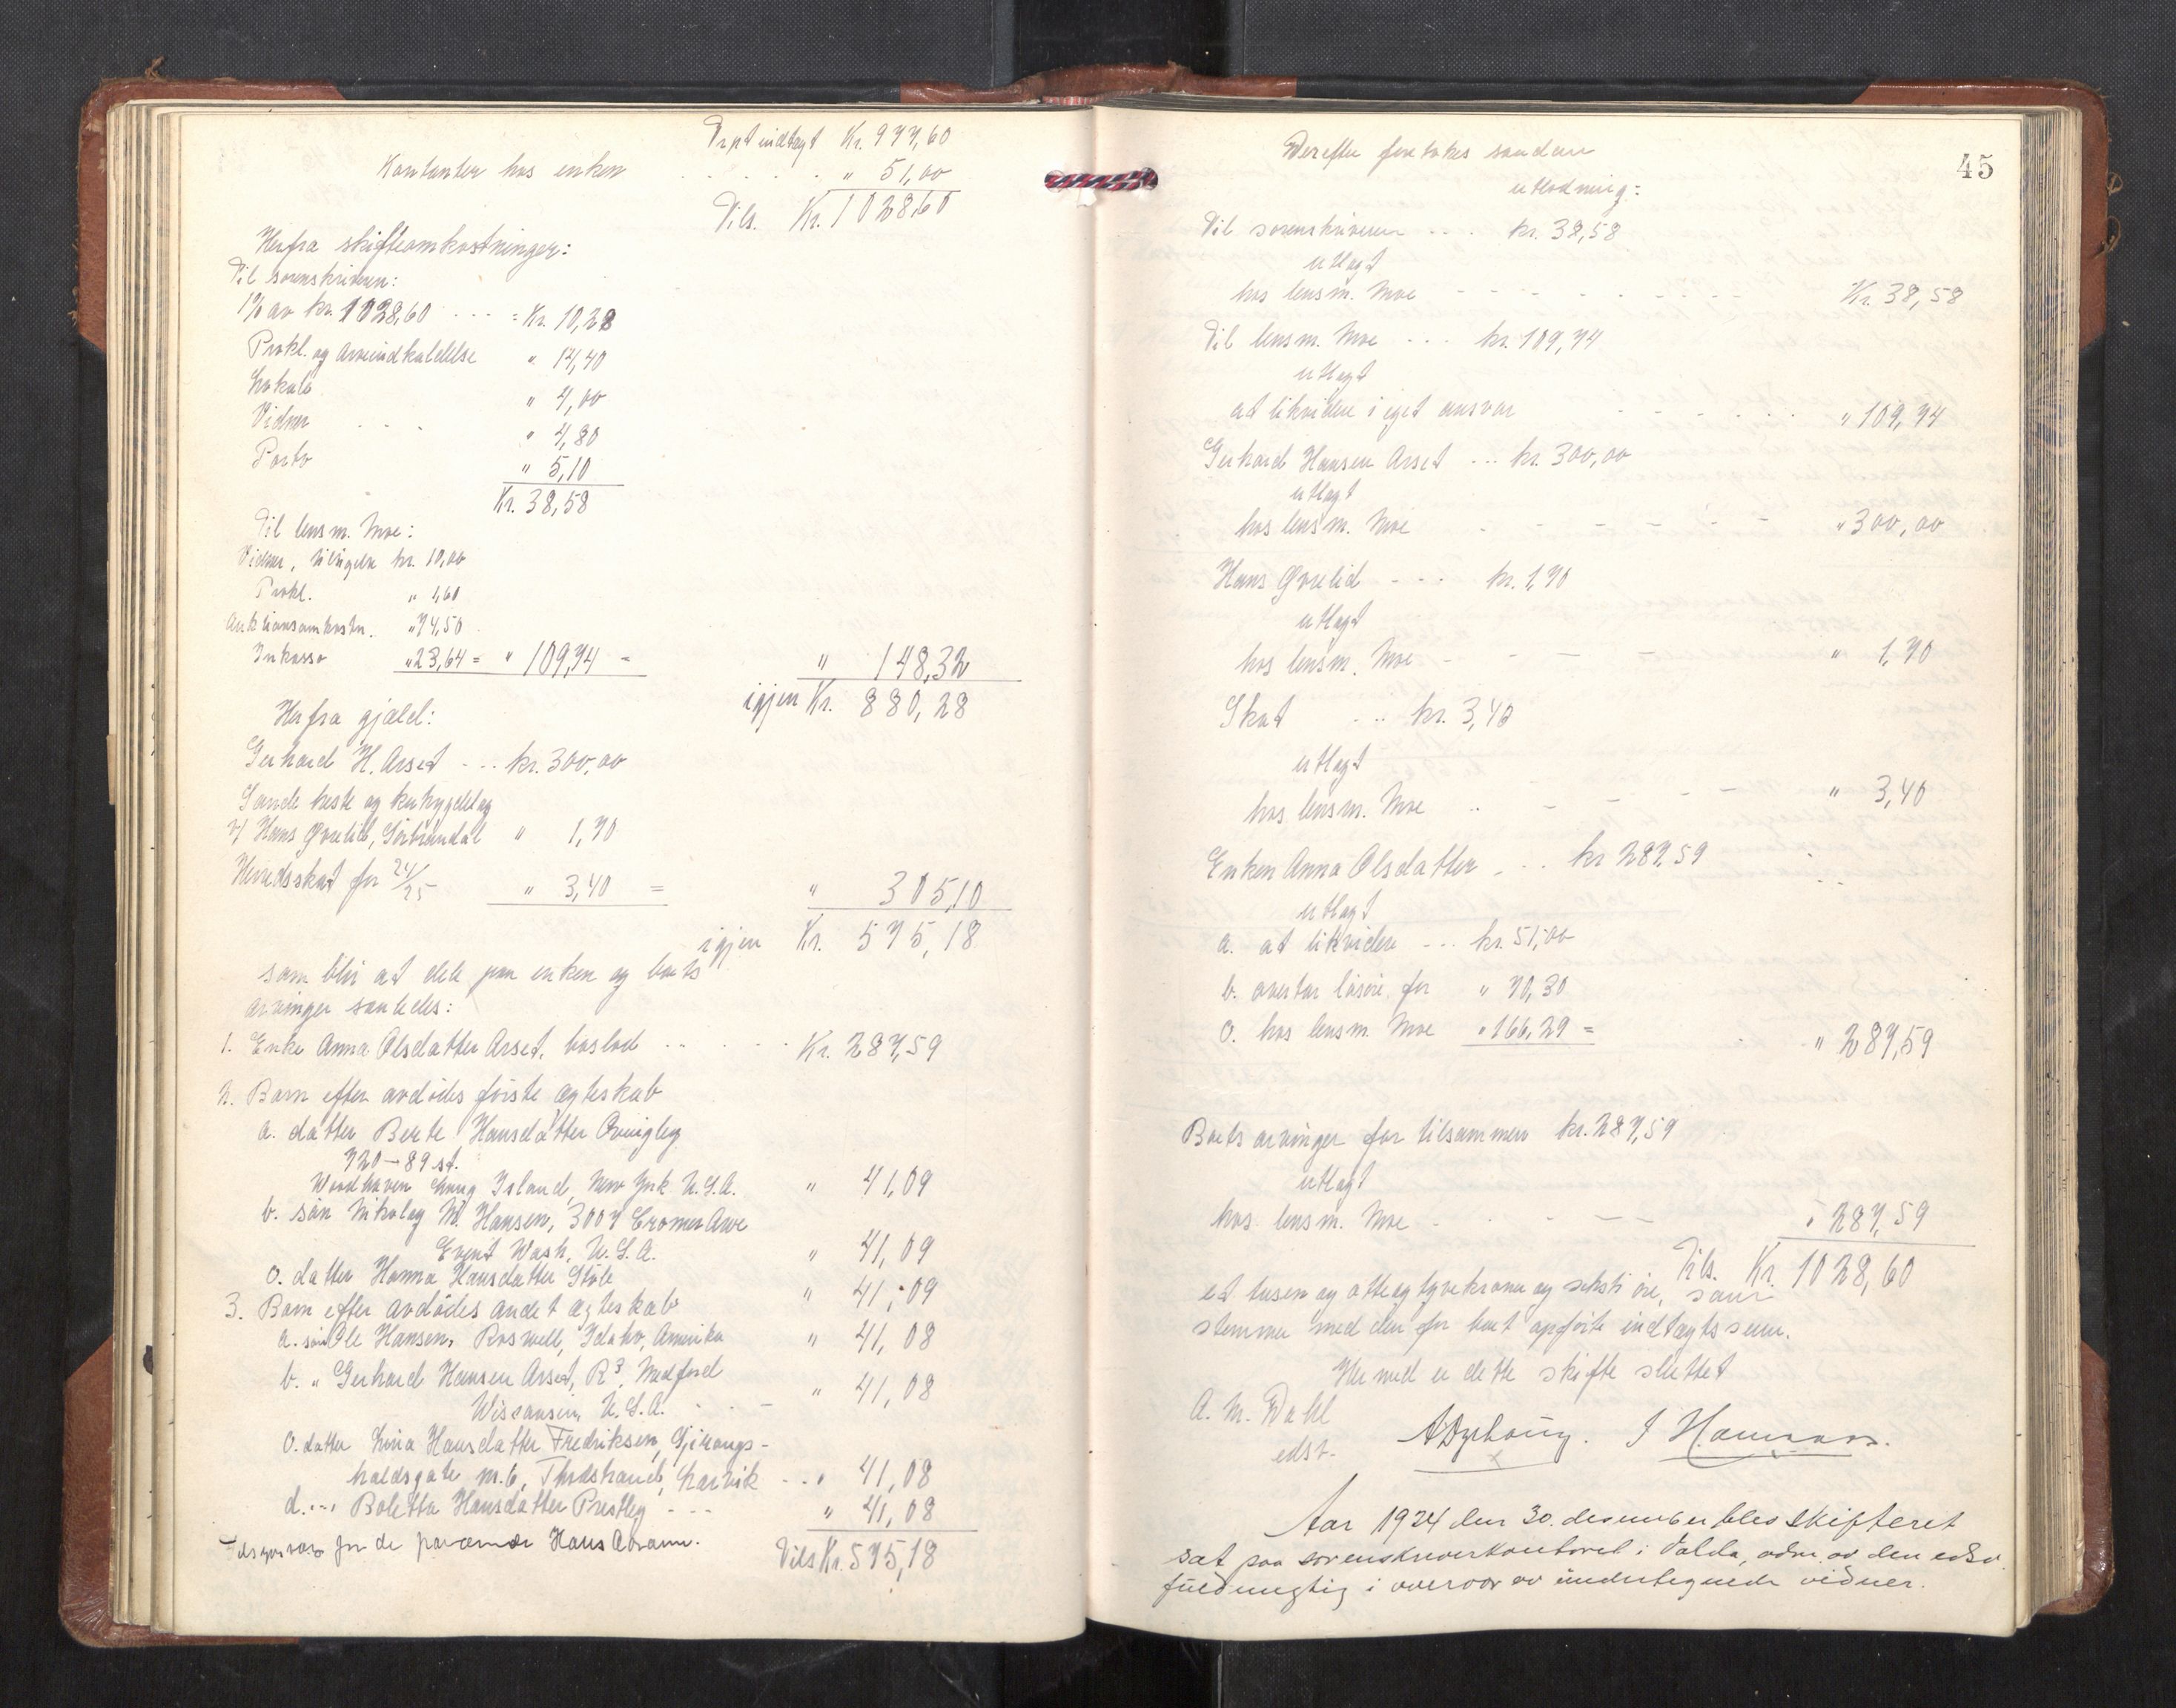 Trpt indtægt Kr. 977,60
Kontanter hos enken . . . . . " 51,00
Tils. Kr. 1028,60
Herfra skifteomkostninger:
Til sorenskriveren:
1% av kr. 1028,60 . . . = Kr. 10,28
Prokl. og Arveindkaldelse " 14,40
Lokale " 4,00
Vidner . . . " 4,80
Porto " 5,10
Kr. 38,58
Til lensm. Moe:
Vidner, kr. 10,00
Prokl. " 1,60
Auktionsomkostn. " 74,50
Inkasso " 23,64 = " 109,74 = " 148,32
igjen Kr. 880,28
Herfra gjæld:
Gerhard H. Arset . . . kr. 300,00
Sande heste og kutrygdelag
v/ Hans Øvrelid, Sörbrandal " 1,70
Herredsskat for 24/25 " 3,40 = " 305,10
igjen Kr. 575,18
som blir at dele paa enken og boets
arvinger saaledes:
1. Enke Anna Olsdatter Arset, boslod . . . . . Kr. 287,59
2. Barn efter avdødes første ægteskab
a. datter Berte Hansdatter
720 - 89 st.
Woodhaven Long Island, New York U.S.A. " 41,09
b. søn Nikolay M. Hansen, 3007 Cromer Ave
Everet Wash, U.S.A. " 41,09
c. datter Hanna Hansdatter Støle " 41,09
3. Barn efter avdødes andet ægteskab
a. søn Ole Hansen, Roswell, Idaho, Amerika " 41,08
b. " Gerhard Hansen Arset, R3, Medford
Wisconsin, U.S.A. . . - " 41,08
c. datter Lina Hansdatter Fredriksen,
haldsgate nr. 6, Thorstrand, Larvik . . . 41,08
d. -"- Boletta Hansdatter Prestley - - - " 41,08
for de Hans Abram.
Tils Kr. 575,18
45
Derefter foretokes saadan
utlodning:
Til sorenskriveren . . . kr. 38,58
utlagt
hos lensm. Moe - - - - - - - Kr. 38,58
Til lensm. Moe . . . kr. 109,74
utlagt
at likvidere i eget ansvar - - - . . . " 109,74
Gerhard Hansen Arset . . . kr. 300,00
utlagt
hos lensm. Moe - - - - - - " 300,00
Hans Øvrelid - - - kr. 1,70
utlagt
hos lensm. Moe - - - - - " 1,70
Skat . . . kr. 3,40
utlagt
hos lensm. Moe . . - - - - " 3,40
Enken Anna Olsdatter . . . kr 287,59
utlagt
a. at likvidere . . . kr. 51,00
b. overtar løsøre for " 70,30
c. hos lensm. Moe " 166,29 = " 287,59
Boets arvinger for tilsammen kr. 287,59
utlagt
hos lensm. Moe - . . - - - " 287,59
Tils. Kr. 1028,60
et tusen og otteogtyve kroner og seksti øre, som
stemmer med den for boet opførte indtægtssum.
Hermed er dette skifte sluttet
A. M. Dahl
edsv.
Aar 1924 den 30. desember blev skifteret
sat paa sorenskriverkontoret i Volda, adm. av den edsv.
fuldmægtig i overvær av undertegnede vidner.